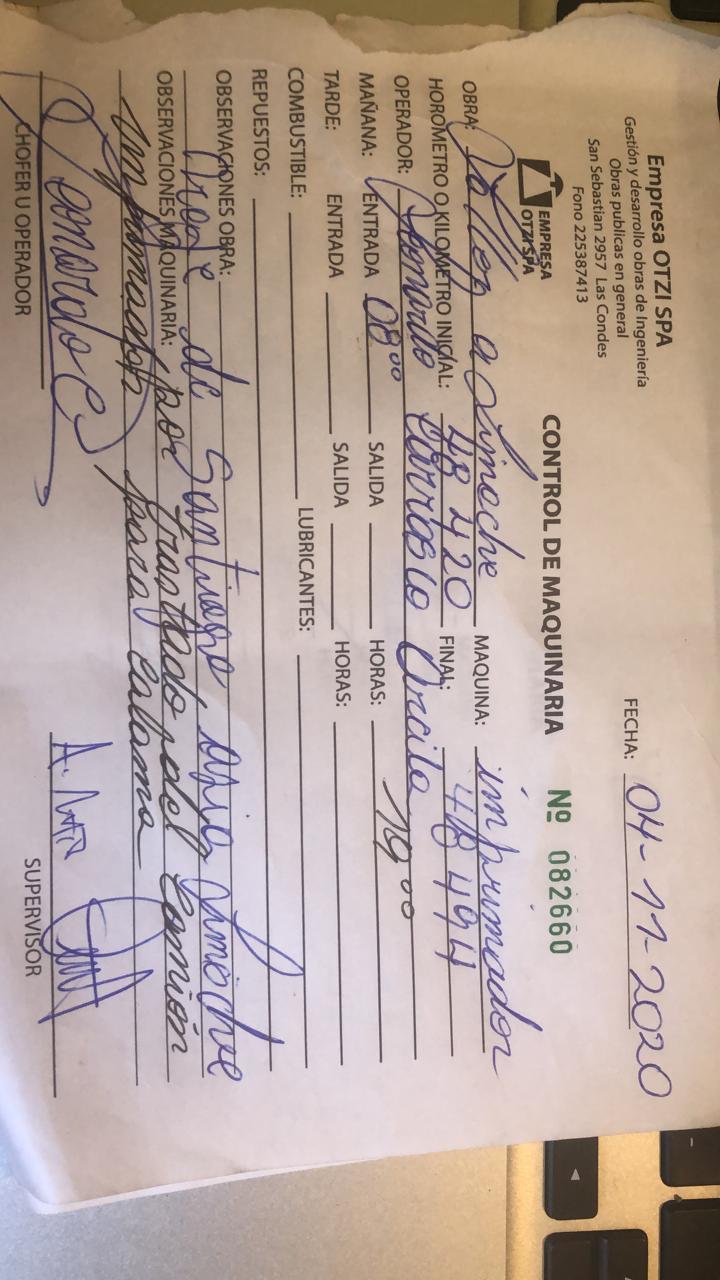 Empresa OTZI SPA
Gestión y desarrollo obras de Ingeniería
Obras publicas en general
San Sebastian 2957 Las Condes
Fono 225387413
FECHA: 04-11-2020
EMPRESA
OTZI SPA
CONTROL DE MAQUINARIA
Nº 082660
OBRA: Taller a Limache MAQUINA: imprimador
HOROMETRO O KILOMETRO INICIAL: 48420 FINAL: 48494
OPERADOR: Leonardo Carrasco
MAÑANA: ENTRADA 08:00 SALIDA HORAS: 19:00
TARDE: ENTRADA SALIDA HORAS:
COMBUSTIBLE: LUBRICANTES:
REPUESTOS:
OBSERVACIONES OBRA: de Santiago Limache
OBSERVACIONES MAQUINARIA: por traslado del camión
para calama
Leonardo C
CHOFER U OPERADOR
SUPERVISOR